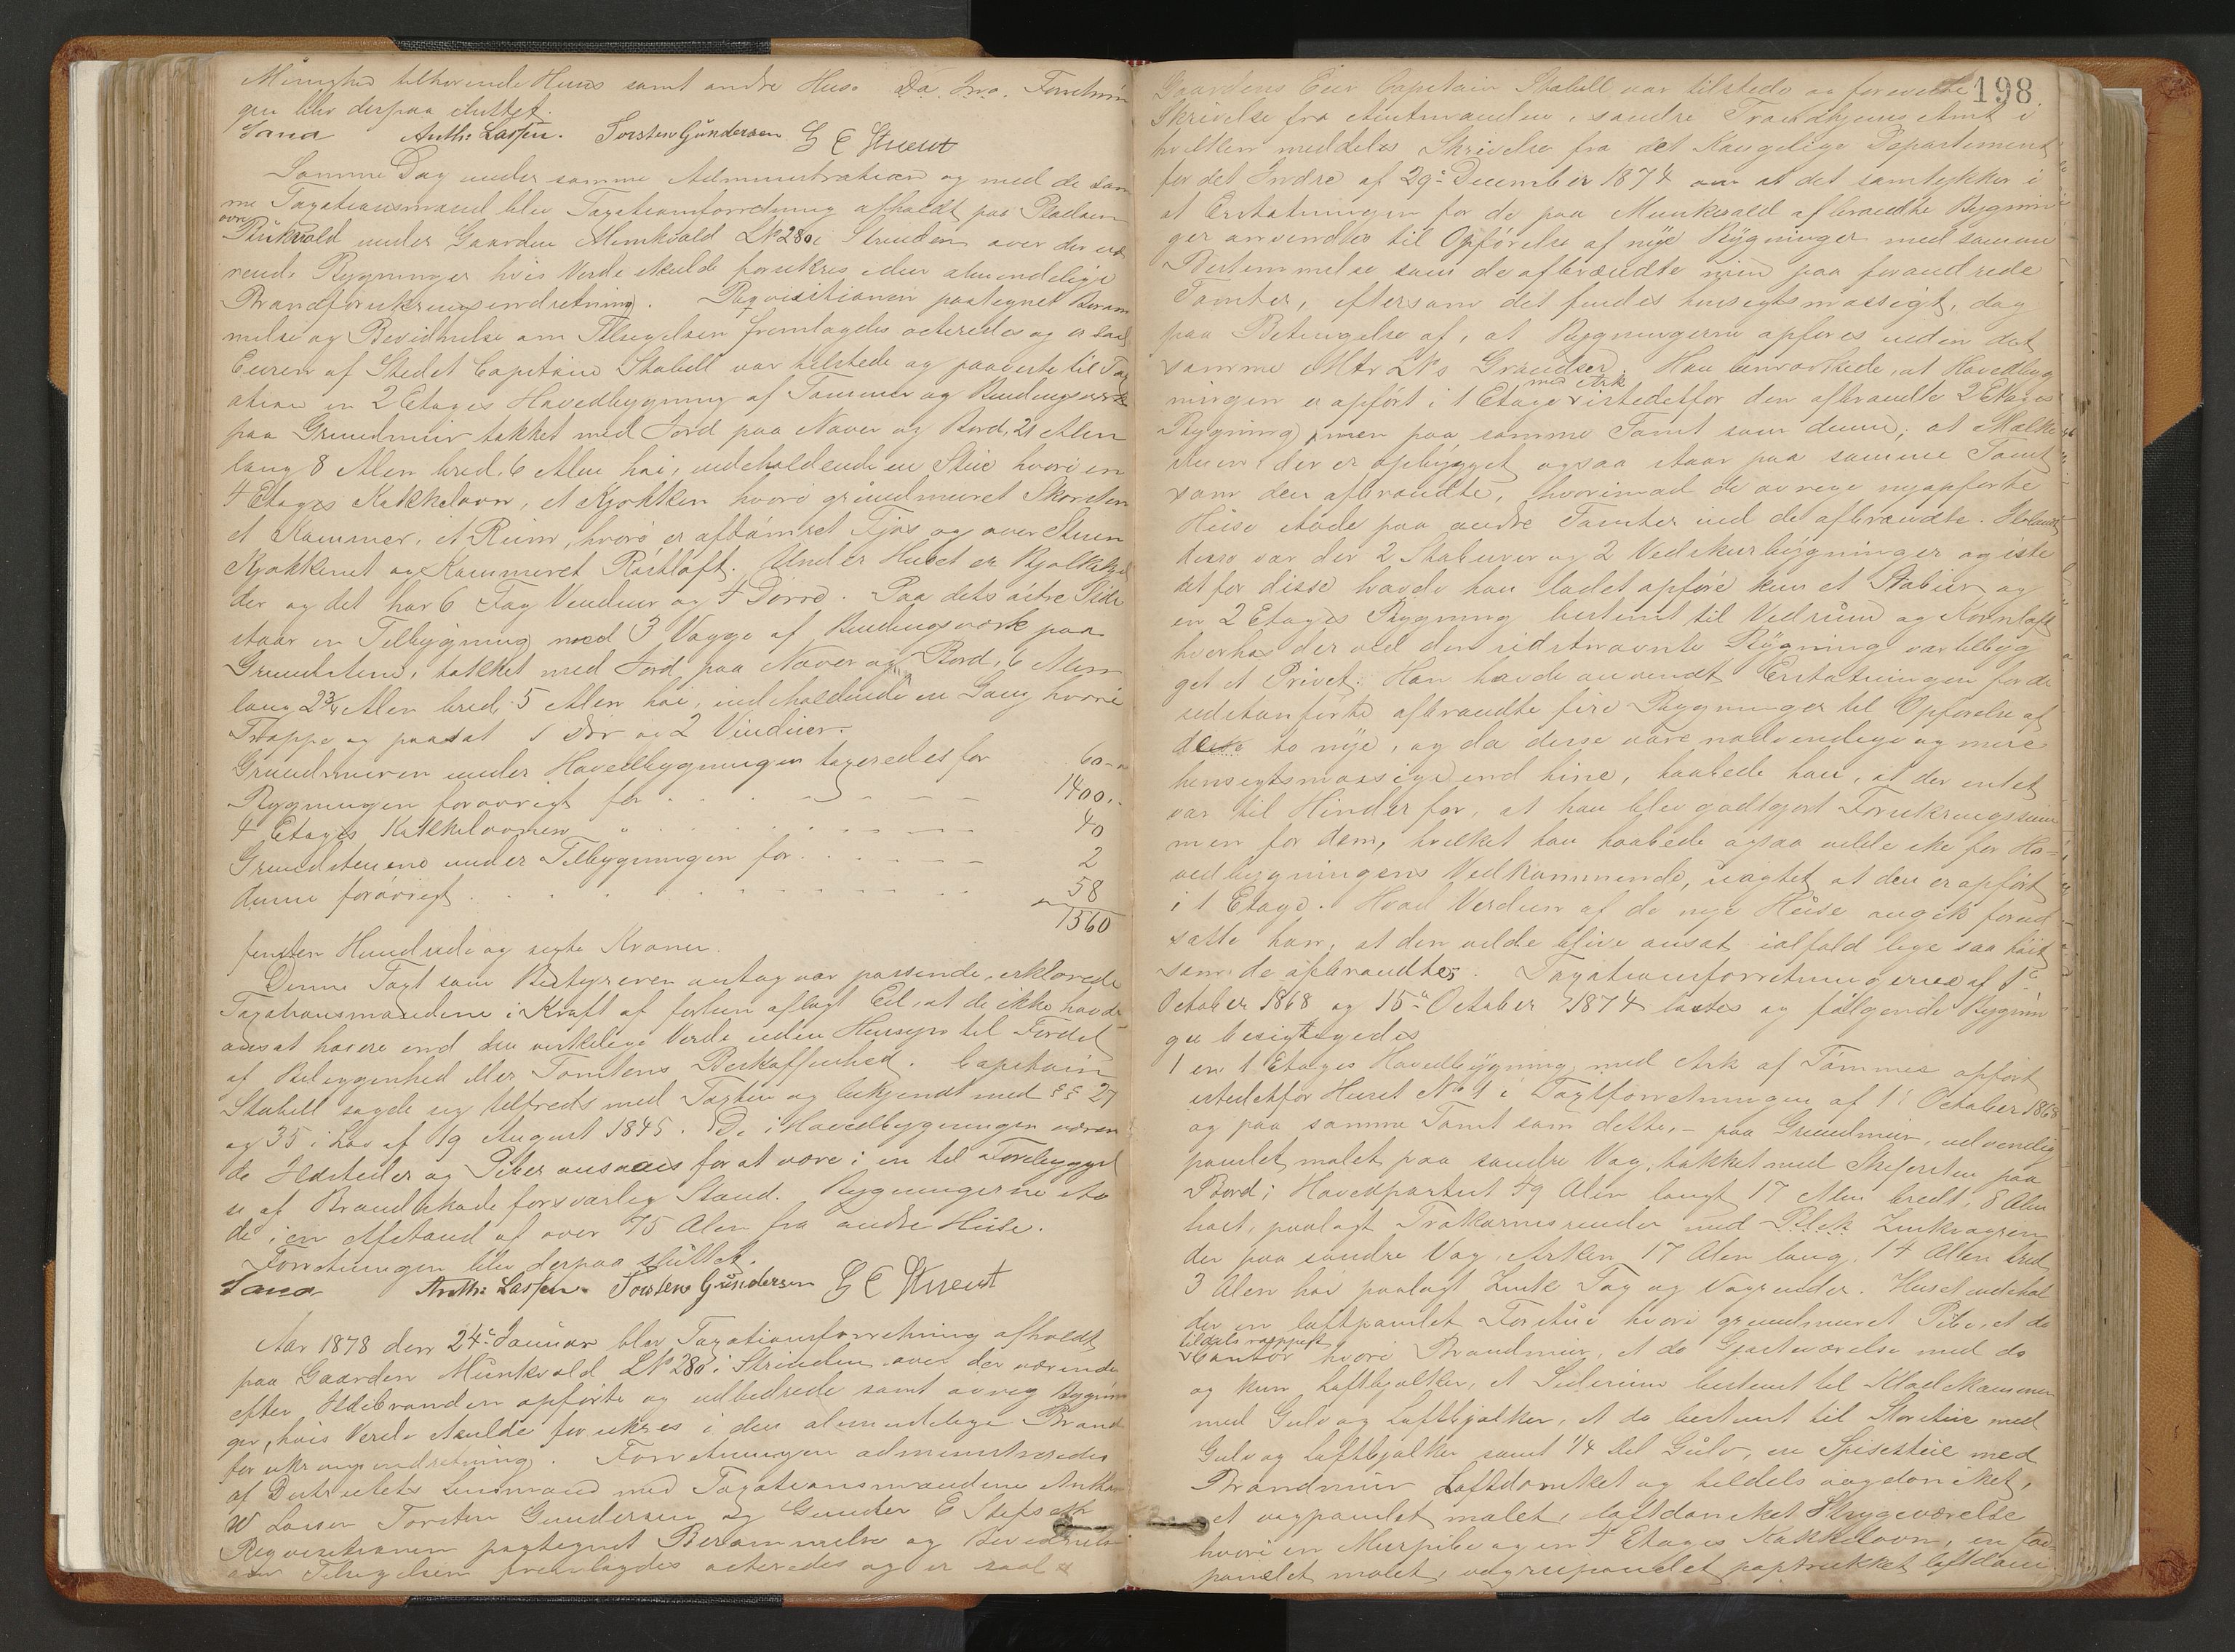 Menighed tilhørende Huus samt andre Huse. Da. Ino. Forretnin
gen blev derpaa sluttet.
Sand Anth: Lassen. Torsten Gundersen G E
Samme Dag under samme Administration og med de sam
me Taxationsmænd blev Taxationsforretning afholdt paa Pladsen
øvre
under Gaarden Munkvold LNo 280 i Strinden over de væ
rende Bygninger hvis Værdi skulde forsikres i den almindelige
Brandforsikringsindretning. Reqvisitionen paategnet Beram
melse og Bevidnelse om Tilsigelsen fremlagdes acteredes og er saal
Eieren af Stedet Capitain Stabell var tilstede og paaviste til Tax
ation en 2 Etages Hovedbygning af Tømmer og Bindingsværk
paa Grundmur takket med Jord paa Næver og Bord, 21 Alen
lang 8 Alen bred, 6 Alen høi, indeholdende en Stue hvori en
4 Etages Kakkelovn, et Kjøkken hvori grundmuret Skorsten
et Kammer, et Rum, hvori er aftømret Fjøs og over Stuen
Kjøkkenet og Kammeret Loft. Under Huset er Kjæl
der og det har 6 Fag Vinduer og 4 Dørre. Paa dets østre Side
staar en Tilbygning med 3 Vægge af Bindingsværk paa
Grundstene, takket med Jord paa Næver og Bord, 6 Alen
lang 2 3/4 Alen bred 5 Alen høi, indeholdende en Gang hvori
Trappe og paasat 1 Dør og 2 Vinduer.
Grundmuren under Hovedbygningen taxeredes for 60
Bygningen forøvrigt for 1400
4 Etages Kakkelovnen " 40
Grundstenene under Tilbygningen for 2
denne forøvrigt 58
1560
femten Hundrede og sexti Kroner.
Denne Taxt som Bestyreren antog var passende, erklærede
Taxationsmændene i Kraft af forhen aflagt Eed, at de ikke havde
ansat høiere end den virkelige Værdi uden Hensyn til Fordel
af Beliggenhed eller Tomtens Beskaffenhed. Capitain
Stabell sagde sig tilfreds med Taxten og bekjendt med §§ 27
og 35 i Lov af 19 August 1845. De i Hovedbygningen væren
de Ildsteder og Piber ansaaes for at være i en til Forebyggel
se af Brandskade forsvarlig Stand. Bygningerne sto
de i en Afstand af over 75 Alen fra andre Huse.
Forretningen blev derpaa sluttet.
Sand Anth: Lassen. Torsten Gundersen G E
Aar 1878 den 24de Januar blev Taxationsforretning afholdt
paa Gaarden Munkvold LNo 280 i Strinden over de værende
efter Ildebranden opførte og udbedrede samt øvrig Bygnin
ger, hvis Værdi skulde forsikres i den almindelige Brand
forsikringsindretning. Forretningen administreredes
af Districtets Lensmand med Taxationsmændene Anthon
W Lassen Torsten Gundersen og Gunder E
Reqvisitionen paategnet Berammelse og Bevidnelse
om Tilsigelsen fremlagdes acteredes og er saal
198.
Gaardens Eier Capitain Stabell var tilstede og foreviste
Skrivelse fra Amtmanden i søndre Trondhjems Amt i
hvilken meddeles Skrivelse fra det Kongelige Departement
for det Indre af 29de December 1874 om at det samtykker i
at Erstatningen for de paa Munkvold afbrændte Bygnin
ger anvendtes til Opførelse af nye Bygninger med samme
Bestemmelse som de afbrændte men paa forandrede
Tomter, eftersom det findes hensigtsmæssigt, dog
paa Betingelse af, at Bygningerne opføres inden det
samme Mtr LNs Grændser. Han bemærkede, at Hovedbyg
med Ark
ningen er opført i 1 Etage istedetfor den afbrændte 2 Etages
Bygning, men paa samme Tomt som denne; at
stuen, der er opbygget ogsaa staar paa samme Tomt
som den afbrændte, hvorimod de øvrige nyopførte
Huse stode paa andre Tomter end de afbrændte. Iblandt
disse var der 2 Stabuer og 2 Vedskurbygninger og iste
detfor disse havde han ladet opføre kun et Stabur og
en 2 Etages Bygning bestemt til Vedrum og Kornloft
hvorhos der ved den sidstnævnte Bygning var tilbyg
get et Privet. Han havde anvendt Erstatningen for de
sidstanførte afbrændte fire Bygninger til Opførelse af
disse to nye, og da disse vare nødvendige og mere
hensigtsmæssige end hine, haabede han, at der intet
var til Hinder for, at han blev godtgjort Forsikringssum
men for dem, hvilket han haabede ogsaa vilde ske for Ho-
vedbygningens Vedkommende, uagtet at den er opført
i 1 Etage. Hvad Værdien af de nye Huse angik forud
satte han, at den vilde blive ansat ialfald lige saa høit
som de afbrændtes. Taxationsforretningerne af 1ste
October 1868 og 15de October 1874 læstes og følgende Bygnin
ger besigtigedes
1 en 1 Etages Hovedbygning med Ark af Tømmer opført
istedetfor Huset No 1 i Taxtforretningen af 1ste October 1868
og paa samme Tomt som dette, - paa Grundmur, udvendig
panelet malet paa søndre Væg, takket med Skifersten paa
Bord; Hovedpartiet 49 Alen langt 17 Alen bredt, 8 Alen
høit, paalagt Trækarnisrender med Zinkvagren
der paa søndre Væg, Arken 17 Alen lang, 14 Alen bred
3 Alen høi paalagt Zink Tag og Vagrender. Huset indehol
der en loftpanelet Forstue hvori grundmuret Pibe, et do
tildels rappet
Contor hvori Brandmur, et do Gjesteværelse med do
og kun Loftbjælker, et Siderum bestemt til Klædekammer
med Gulv og Loftbjælker, et do bestemt til Storstue med
Gulv og Loftbjælker samt 1/4 Del Gulv, en Spisestue med
Brandmur Loftdonket og tildels vægdonket,
et vægpanelet malet, loftdonket Strygeværelse
hvori en Murpibe og en 4 Etages Kakkelovn, en
panelet malet, vægrupanelet paptrukket loftdon